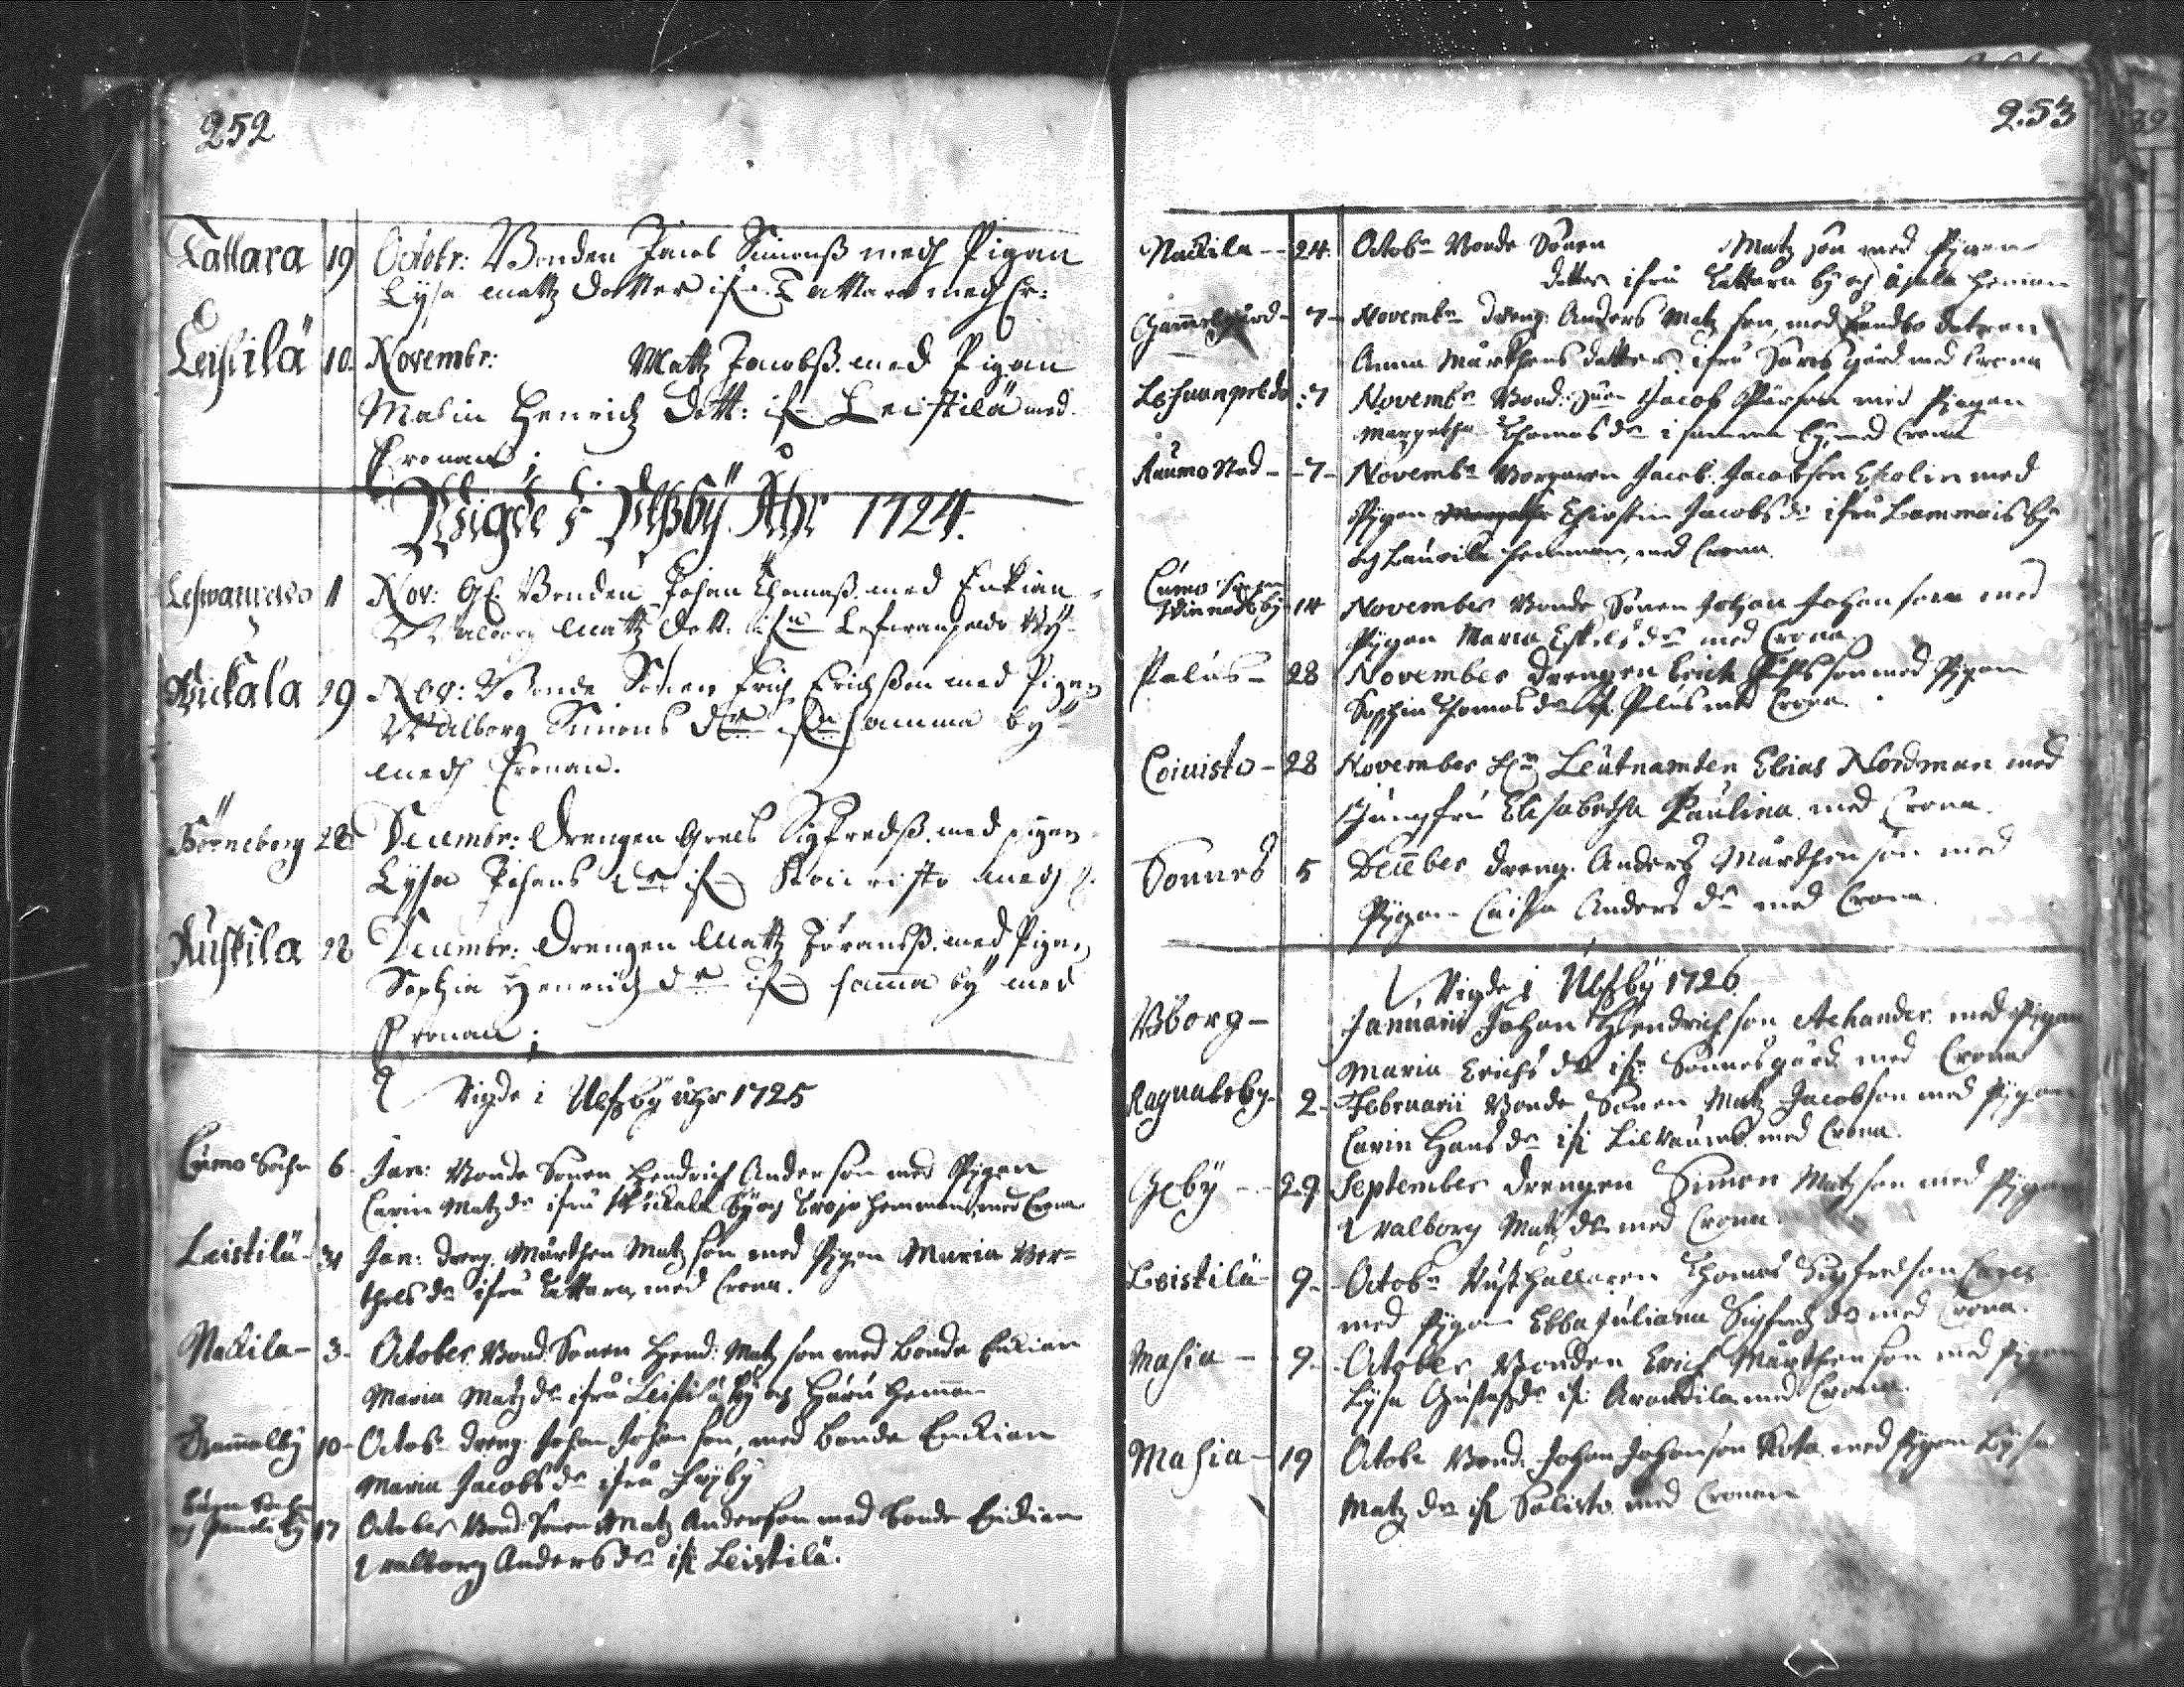 252
Tattara 19 Octobr: Bonden Jacob Simonß med Pigan
Lysa Mattz dotter ifrå Tattara med Cr:
Leistilä 10 Novembr: Mattz Jacobß. med Pigan
Malin Henrich dott: ifr Leistilä med
Cronan;
Wigde i Ulfsby Åhr 1724.
1 Nov: Bonden Johan Thomasß. med Enkian
Walborg Mattz dott: ifrå Lefwanpeldo By
Wickala 29 Nov: Bonde Sonen Erich Erichßon med Pigan
Walborg Simons dr ifrån samma by
med Cronan.
Börneborg 28 Decembr: Drengen Grels Sigfredß. med pigan
Lysa Johans dr ifr Koivisto med C.
Ruskila 28 Decembr: Drengen Mattz Jöransß. med Pigan
Sophia Henrich dr ifr samma by med
Cronan;
Vigde i Ulfsby åhr 1725
Cumo Sochn 6. Jan: Bonde Sonen Hendrich Anderson med Pygan
Carin Matz dr ifrå Wickala By och Trojo hemman, med Crona
Leistilä - 31 Jan: dreng. Mårthen Matzson med Pigan Maria Ber=
thels dr ifrå Tattara, med Crona.
Nackila - 3 - October Bond. Sonen Hend: Matz son med Bonde Enckian
Maria Matz dr ifrå Leistilä by och Haru hemman
Gammalby 10 - Octobr dreng. Johan Johan son, med Bonde Enckian
Maria Jacobs dr ifrå
17 October Bond. Sonen Matz Anderson med Bonde Enckian
Walborg Anders dr ifr Leistilä.
253
Nackila - - 24. Octobr Bonde Sonen Matz son med Pygan
dotter ifrå Tattara by och hemman
Gammelgård - 7 - Novembr dreng. Anders Matz son, med
Anna Mårthens dotter, ifrå Sonnes gård med Crona
Lefwanpeldo : 7 Novembr Bond: Son Jacob Pärson med Pygan
Margetha Thomas dr i samma by, med Crona
Raumo Stad - - 7 - Novembr Borgaren Jacob. Jacobson Ekolin med
Pygan Christin Jacobs dr ifrå Lammais by
och Laurila hemman, med Crona.
Cumo Sochn
14 November Bonde Sonen Johan Johan son med
Pygan Maria Eskels dr med Crona
Palus - 28 November Drengen Erich son med Pygan
Sophia Thomas dr ifr Palus med Crona
Coivisto - 28 November Leutnamten Elias Nordman med
Jungfru Elisabetha Paulina med Crona.
Sonnes 5 December dreng. Anders Mårthen son med
Pygan Caisa Anders dr med Crona.
Vigde i Ulfsby 1726
Bborg - Januarii Johan Hendrichson Achander med Pygan
Maria Erichs dr ifr Sonnesgård med Crona
Ragnalsby - 2 - Februarii Bonde Sonen Matz Jacobson med Pygan
Carin Hans dr ifr Lilraums med Crona.
Gxby - - 29 September drengen Simon Matzson med Pygan
Walborg Matz dr med Crona.
Leistilä - 9 - Octobr Rusthallaren Thomas Sigfredson
med Pygan Ebba Juliana Sigfredz dr med Crona.
Masia - 9 - October Bonden Erich Mårthenson med Pygan
Lysa Gustafs dr ifr med Crona.
Masia - 19 Octobr Bond. Johan Johanson Kota med Pygan Lysa
Matz dr ifr Salisto med Cronan